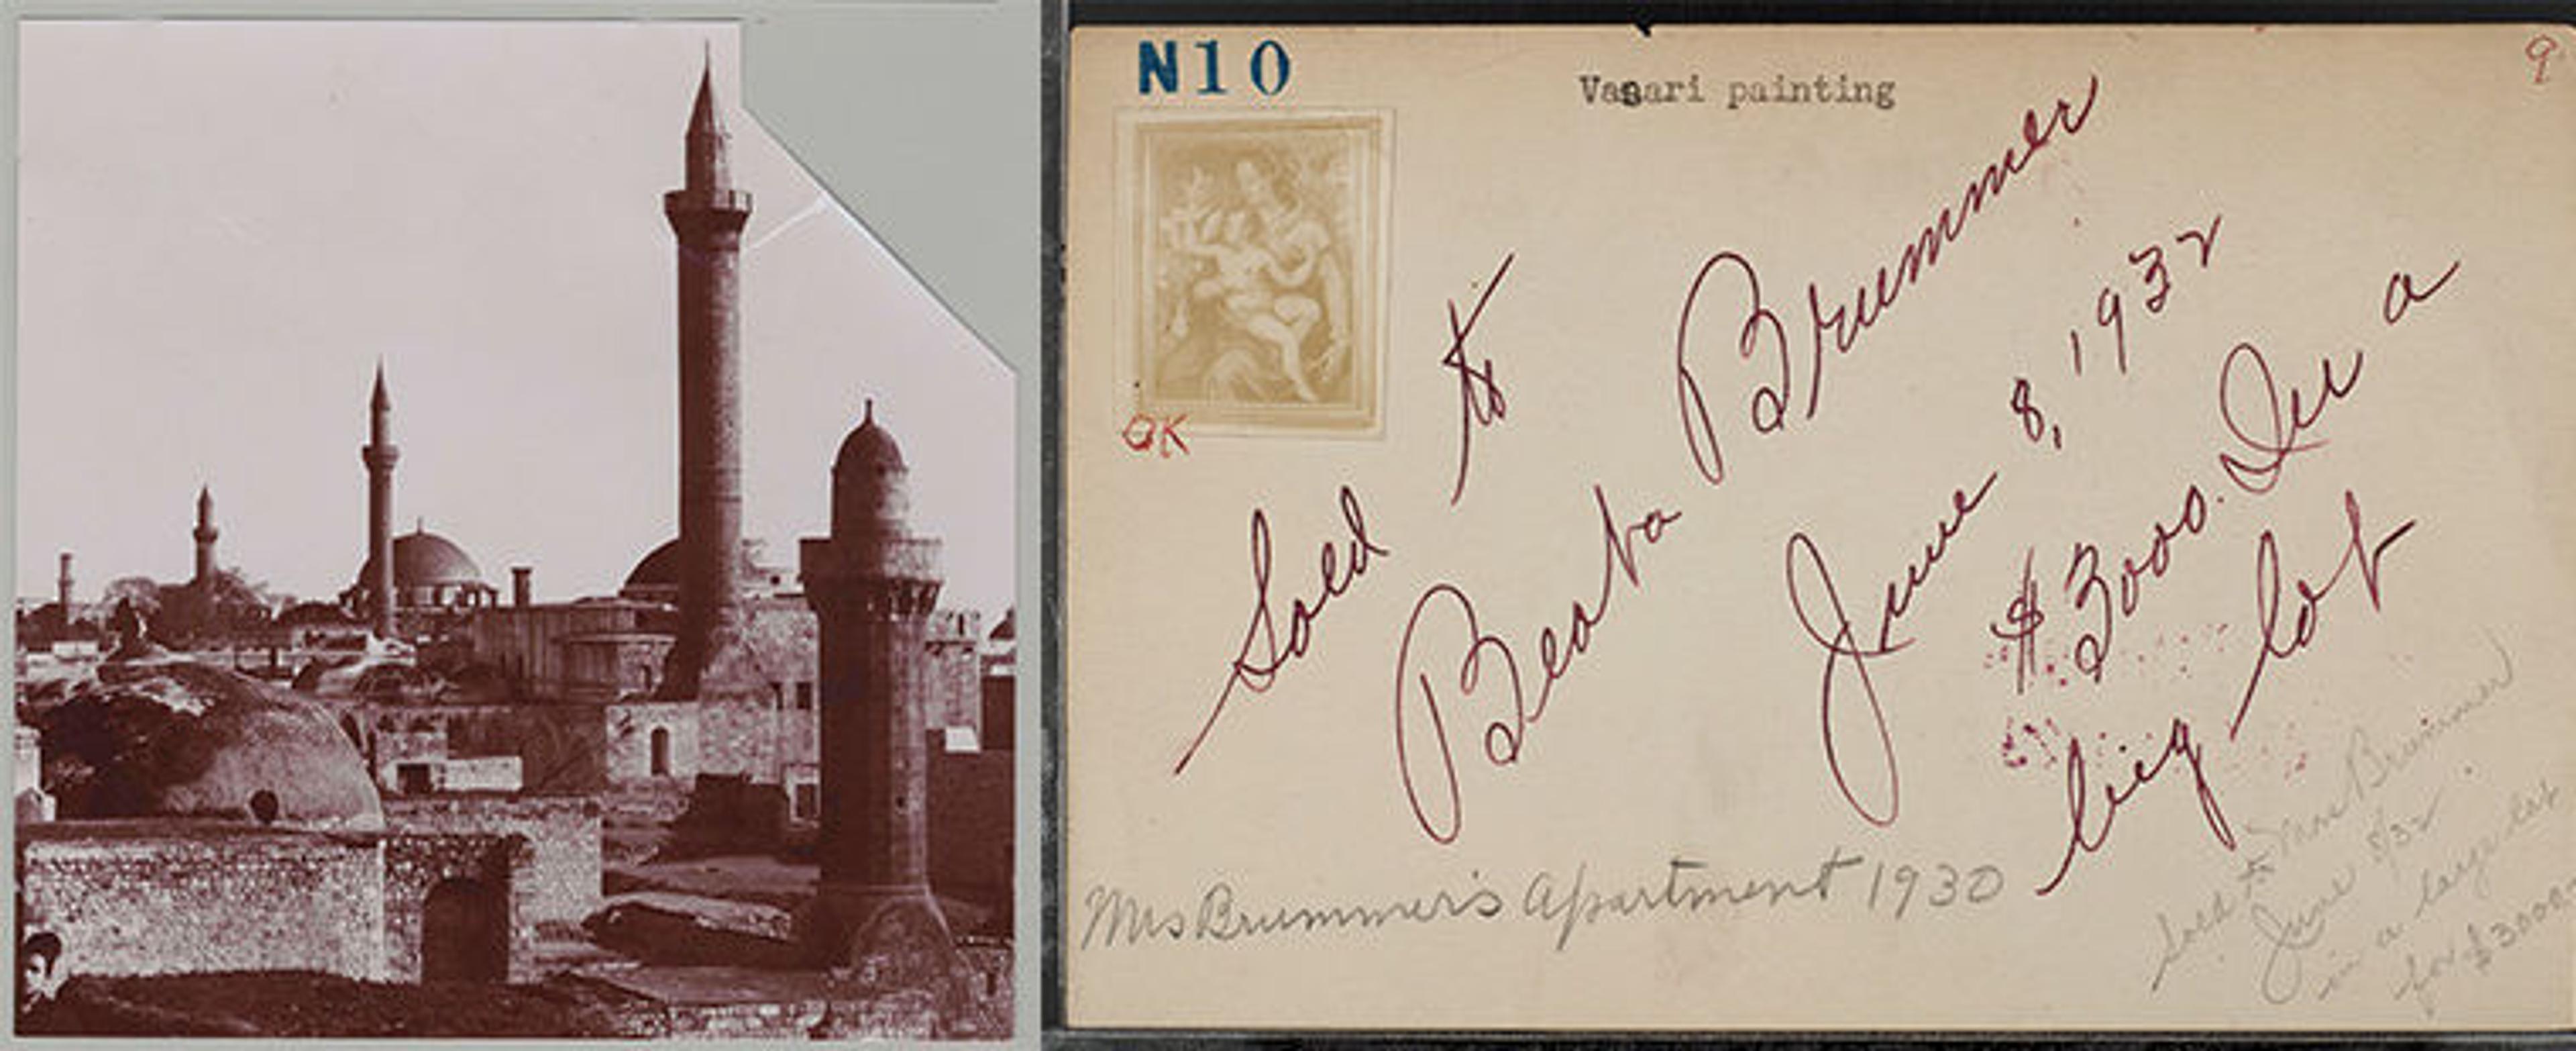 N10
Vasari painting
9
OK
Sold to
Beata Brummer
June 8, 1932
$3000. In a
big lot
Mrs Brummer's Apartment 1930
Sold to Mrs Brummer
June 8/32
in a large lot
for $3000